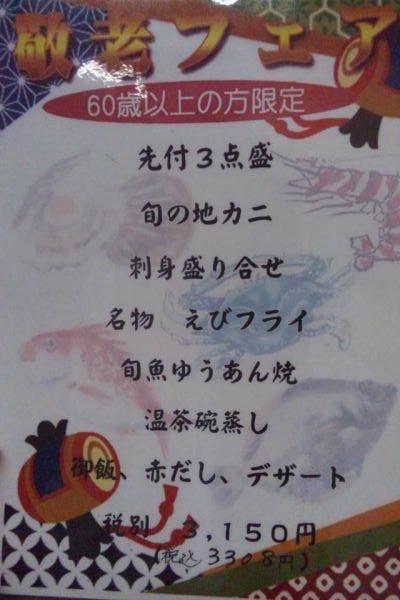 敬老フェア
60歳以上の方限定
先付３点盛
旬の地カニ
刺身盛り合せ
名物　えびフライ
旬魚ゆうあん焼
温茶碗蒸し
御飯、赤だし、デザート
税別　３,１５０円
(税込 3308円)